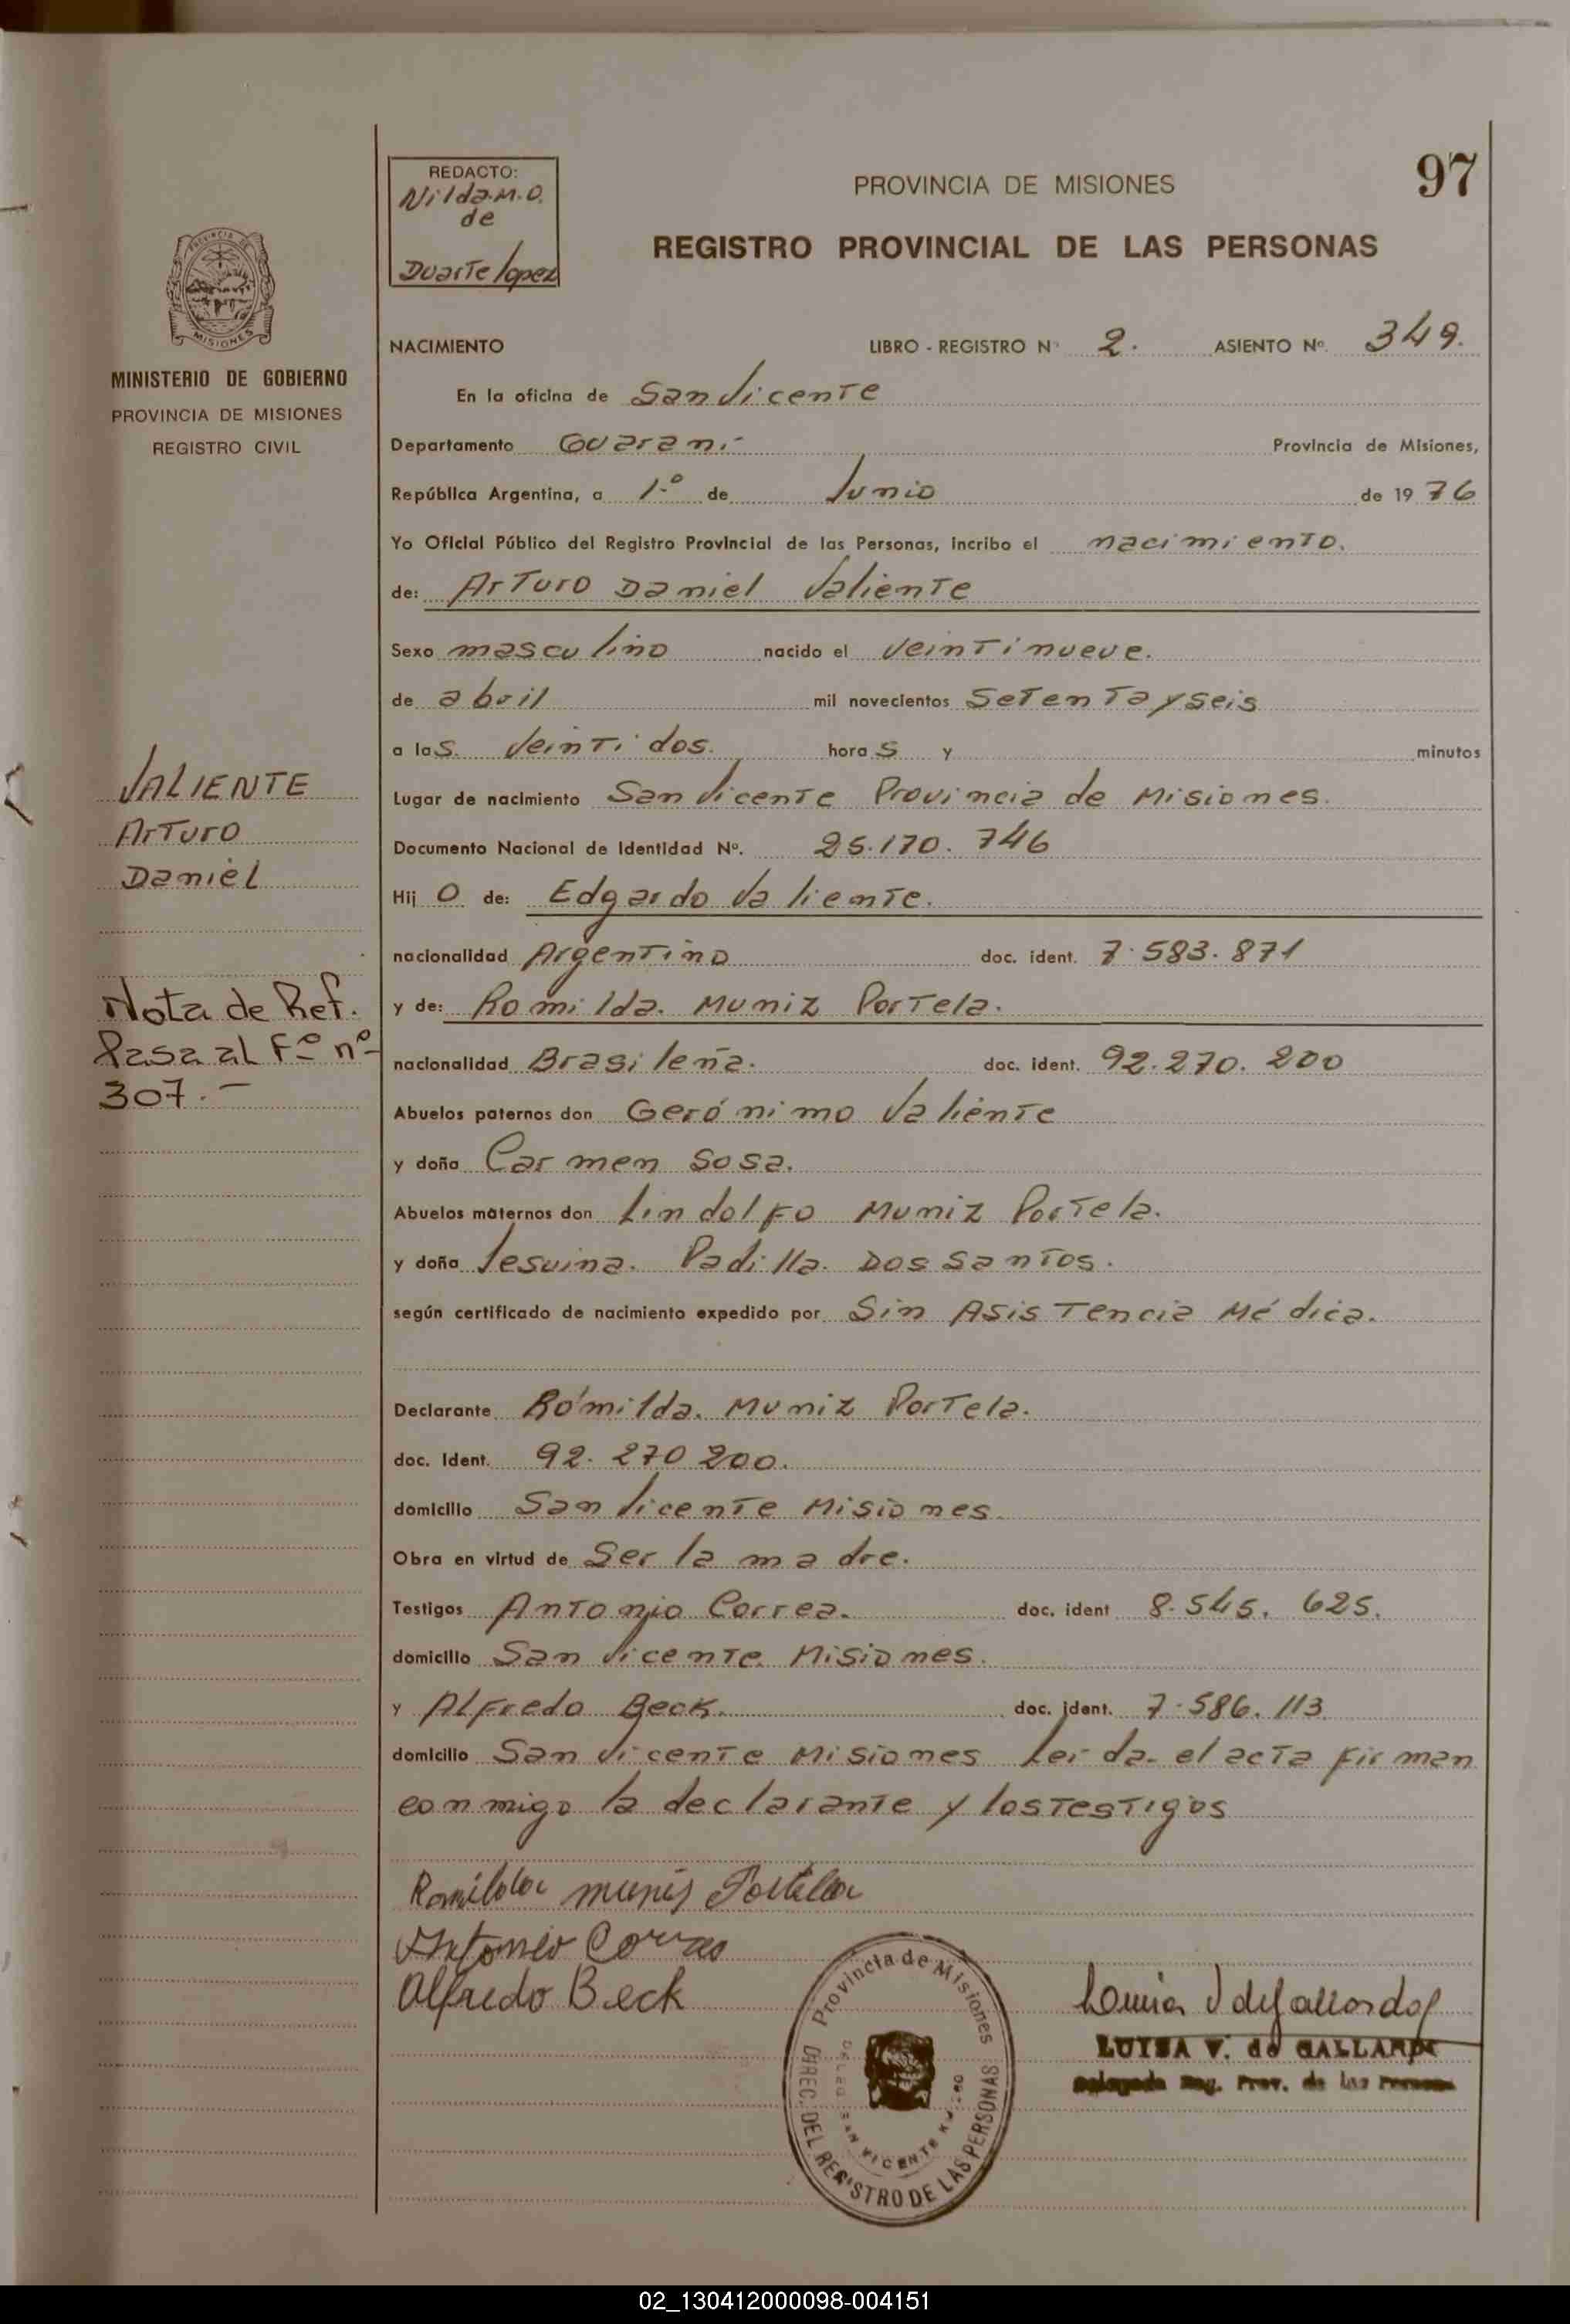 97
REDACTO:
Nilda.M.O.
de
Duarte lopez
PROVINCIA DE MISIONES
REGISTRO PROVINCIAL DE LAS PERSONAS
PROVINCIA DE
MISIONES
MINISTERIO DE GOBIERNO
PROVINCIA DE MISIONES
REGISTRO CIVIL
NACIMIENTO LIBRO - REGISTRO Nº 2. ASIENTO Nº. 349.
En la oficina de San Vicente
Departamento Guaraní Provincia de Misiones,
República Argentina, a 1.º de Junio de 1976
Yo Oficial Público del Registro Provincial de las Personas, incribo el nacimiento.
de: Arturo Daniel Valiente
Sexo masculino nacido el veintinueve.
de abril mil novecientos setenta y seis
a las veintidos. horas y minutos
Lugar de nacimiento San Vicente Provincia de Misiones.
Documento Nacional de Identidad Nº. 25.170.746
Hijo de: Edgardo Valiente.
nacionalidad Argentino doc. ident. 7.583.871
y de: Romilda. Muniz Portela.
nacionalidad Brasileña. doc. ident. 92.270.200
Abuelos paternos don Gerónimo Valiente
y doña Carmen Sosa.
Abuelos maternos don Lindolfo Muniz Portela.
y doña Jesuina. Padilla. Dos Santos.
según certificado de nacimiento expedido por Sin Asistencia Médica.
Declarante Rómilda. Muniz Portela.
doc. Ident. 92.270 200.
domicilio San Vicente Misiones.
Obra en virtud de Ser la madre.
Testigos Antonio Correa. doc. ident 8.545.625.
domicilio San Vicente Misiones.
y Alfredo Beck. doc. ident. 7.586.113
domicilio San Vicente Misiones Leída el acta firman
conmigo la declarante y los testigos
VALIENTE
Arturo
Daniel
Nota de Ref.
Pasa al Fº nº
307.-
Romilda munis Portela
Antonio Correa
Alfredo Beck
Luisa V de Gallardo
LUISA V. de GALLARDO
Delegada Reg. Prov. de las Personas
Provincia de Misiones
DIREC. DEL REGISTRO DE LAS PERSONAS
SAN VICENTE
02_130412000098-004151